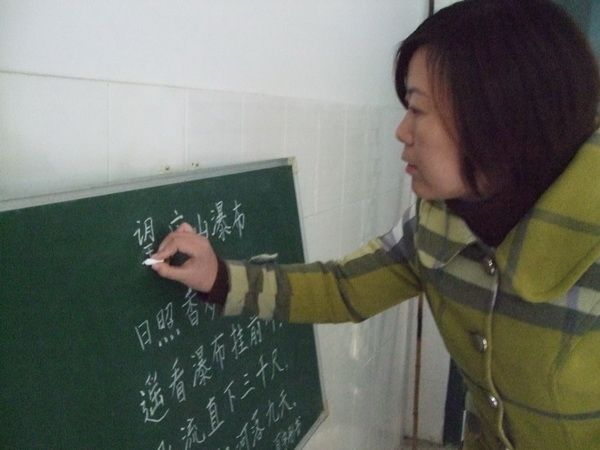 望庐山瀑布
日照香
遥看瀑布挂前
流直下三千尺.
河落九天.